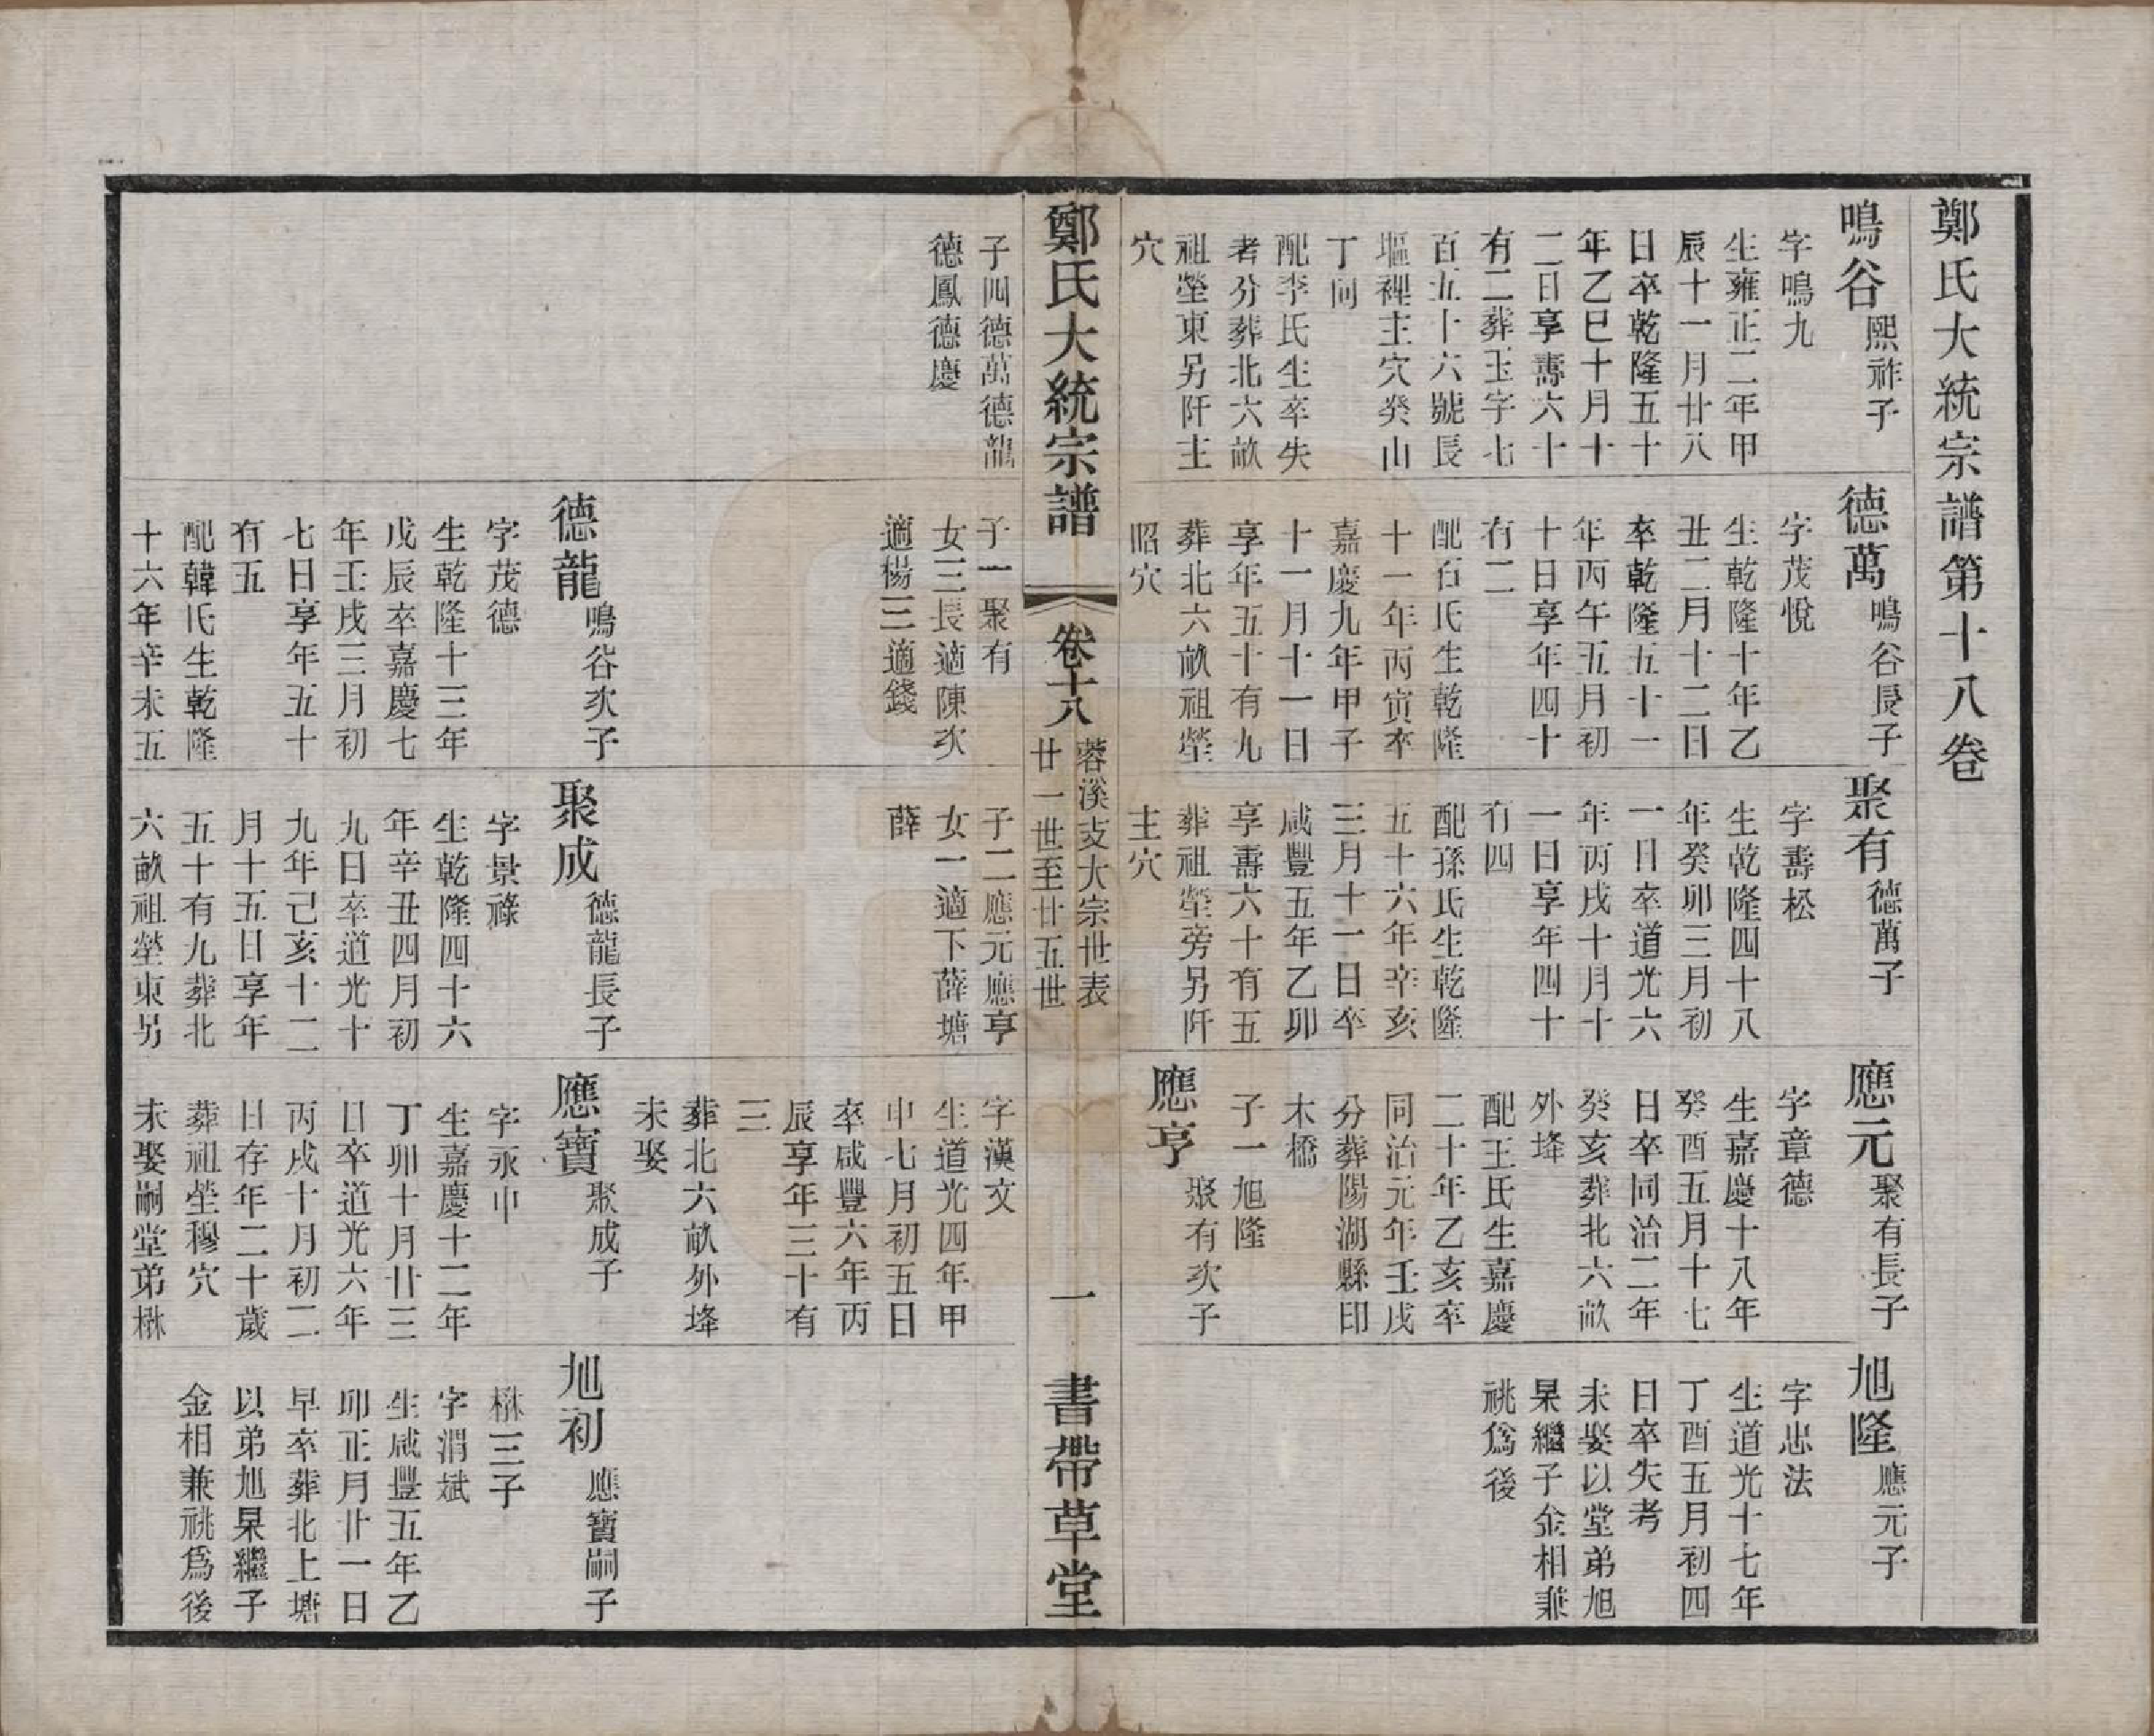 鄭氏大統宗譜第十八卷
鳴谷
熙祚子
字鳴九
生雍正二年甲
辰十一月廿八
日卒乾隆五十
年乙巳十月十
二日享壽六十
有二葬玉字七
百五十六號長
塸裡主穴癸山
丁向
配李氏生卒失
考分葬北六畝
祖塋東另阡主
穴
德萬
鳴谷長子
字茂悅
生乾隆十年乙
丑二月十二日
卒乾隆五十一
年丙午五月初
十日享年四十
有二
配石氏生乾隆
十一年丙寅卒
嘉慶九年甲子
十一月十一日
享年五十有九
葬北六畝祖塋
昭穴
聚有
德萬子
字壽松
生乾隆四十八
年癸卯三月初
一日卒道光六
年丙戌十月十
一日享年四十
有四
配孫氏生乾隆
五十六年辛亥
三月十一日卒
咸豐五年乙卯
享壽六十有五
葬祖塋旁另阡
主穴
應元
聚有長子
字章德
生嘉慶十八年
癸酉五月十七
日卒同治二年
癸亥葬北六畝
外埄
配王氏生嘉慶
二十年乙亥卒
同治元年壬戌
分葬陽湖縣印
木橋
子一旭隆
應亨
聚有次子
旭隆
應元子
字忠法
生道光十七年
丁酉五月初四
日卒失考
未娶以堂弟旭
杲繼子金相兼
祧爲後
鄭氏大統宗譜
卷十八
蓉溪支大宗世表
廿一世至廿五世
一
書帶草堂
子四德萬德龍
德鳳德慶
子一聚有
女三長適陳次
適楊三適錢
德龍
鳴谷次子
字茂德
生乾隆十三年
戊辰卒嘉慶七
年壬戌三月初
七日享年五十
有五
配韓氏生乾隆
十六年辛未五
子二應元應亨
女一適下薛塘
薛
聚成
德龍長子
字景祿
生乾隆四十六
年辛丑四月初
九日卒道光十
九年己亥十二
月十五日享年
五十有九葬北
六畝祖塋東另
字漢文
生道光四年甲
申七月初五日
卒咸豐六年丙
辰享年三十有
三
葬北六畝外埄
未娶
應寶
聚成子
字永中
生嘉慶十二年
丁卯十月廿三
日卒道光六年
丙戌十月初二
日存年二十歲
葬祖塋穆穴
未娶嗣堂弟楙
旭初
應寶嗣子
楙三子
字渭斌
生咸豐五年乙
卯正月廿一日
早卒葬北上塘
以弟旭杲繼子
金相兼祧爲後